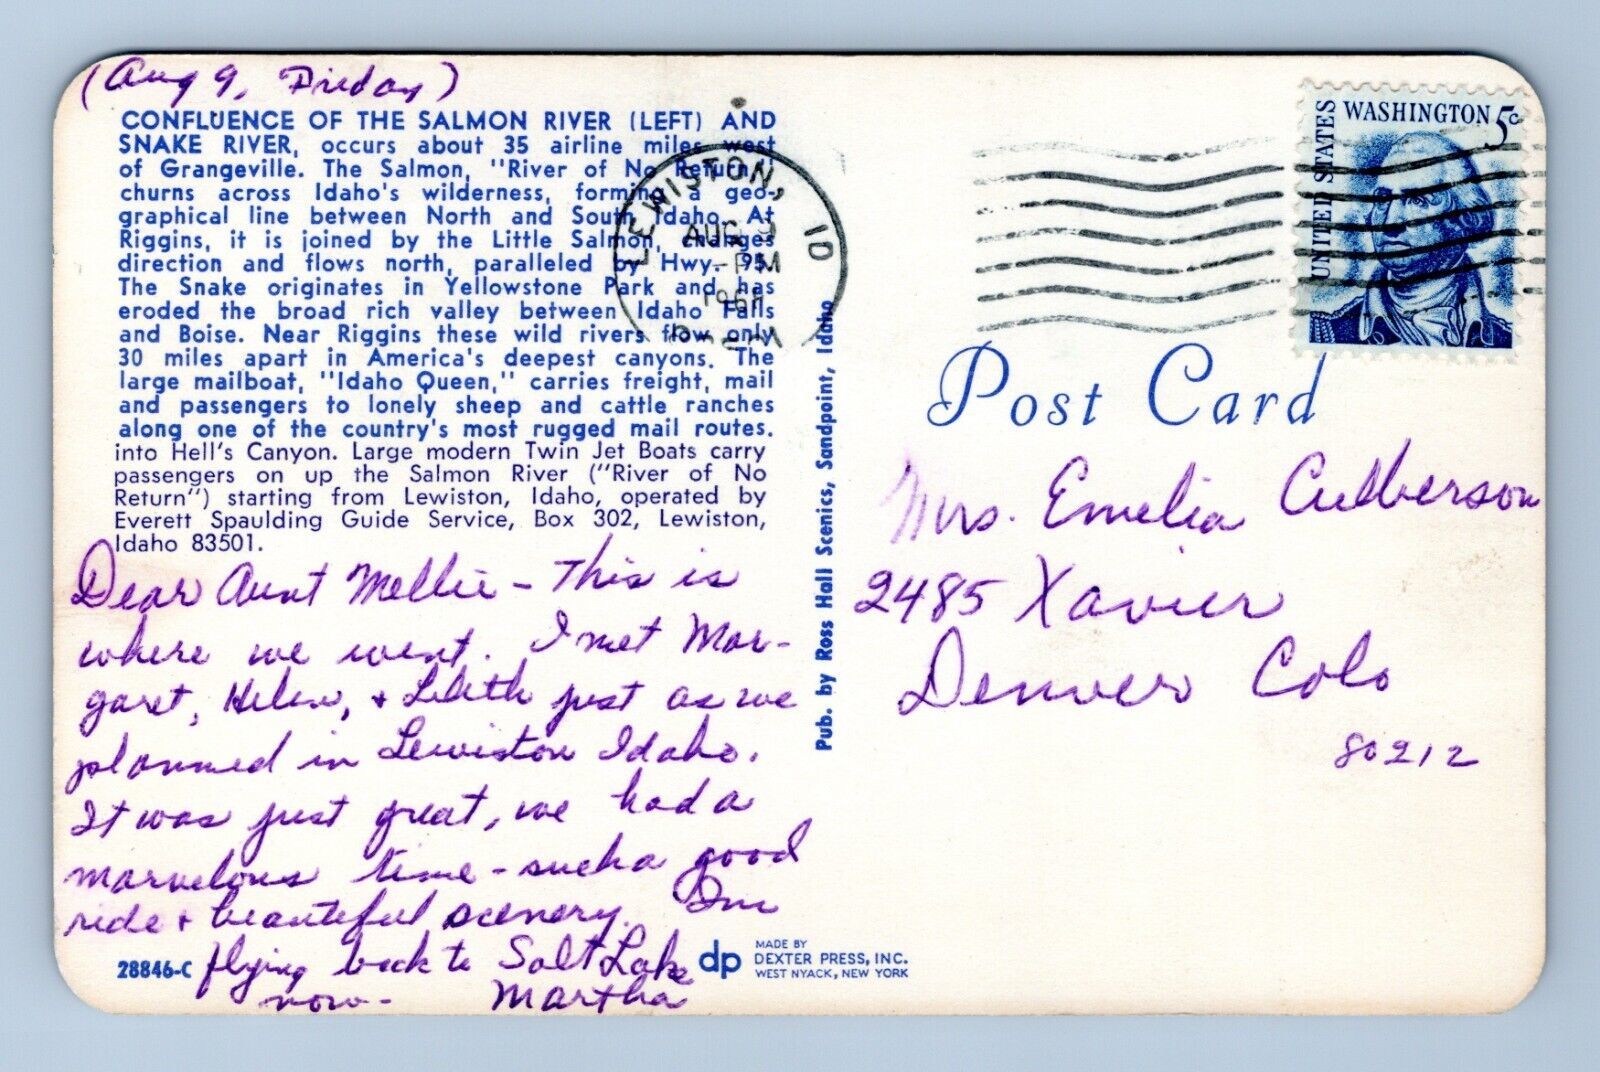 (Aug 9, Friday)
CONFLUENCE OF THE SALMON RIVER (LEFT) AND
SNAKE RIVER, occurs about 35 airline miles west
of Grangeville. The Salmon, "River of No Return,"
churns across Idaho's wilderness, forming a geo-
graphical line between North and South Idaho. At
Riggins, it is joined by the Little Salmon, changes
direction and flows north, paralleled by Hwy. 95.
The Snake originates in Yellowstone Park and has
eroded the broad rich valley between Idaho Falls
and Boise. Near Riggins these wild rivers flow only
30 miles apart in America's deepest canyons. The
large mailboat, "Idaho Queen," carries freight, mail
and passengers to lonely sheep and cattle ranches
along one of the country's most rugged mail routes.
into Hell's Canyon. Large modern Twin Jet Boats carry
passengers on up the Salmon River ("River of No
Return") starting from Lewiston, Idaho, operated by
Everett Spaulding Guide Service, Box 302, Lewiston,
Idaho 83501.
Dear Aunt Mellie - This is
where we went. I met Mar-
garet, Helen, + Lilith just as we
planned in Lewiston Idaho.
It was just great, we had a
marvelous time - such a good
ride + beautiful scenery. I'm
flying back to Salt Lake
now - Martha
28846-C
dp
MADE BY
DEXTER PRESS, INC.
WEST NYACK, NEW YORK
Pub. by Ross Hall Scenics, Sandpoint, Idaho
LEWISTON, ID
AUG 9
PM
UNITED STATES
WASHINGTON 5c
Post Card
Mrs. Emelia Culberson
2485 Xavier
Denver Colo
80212